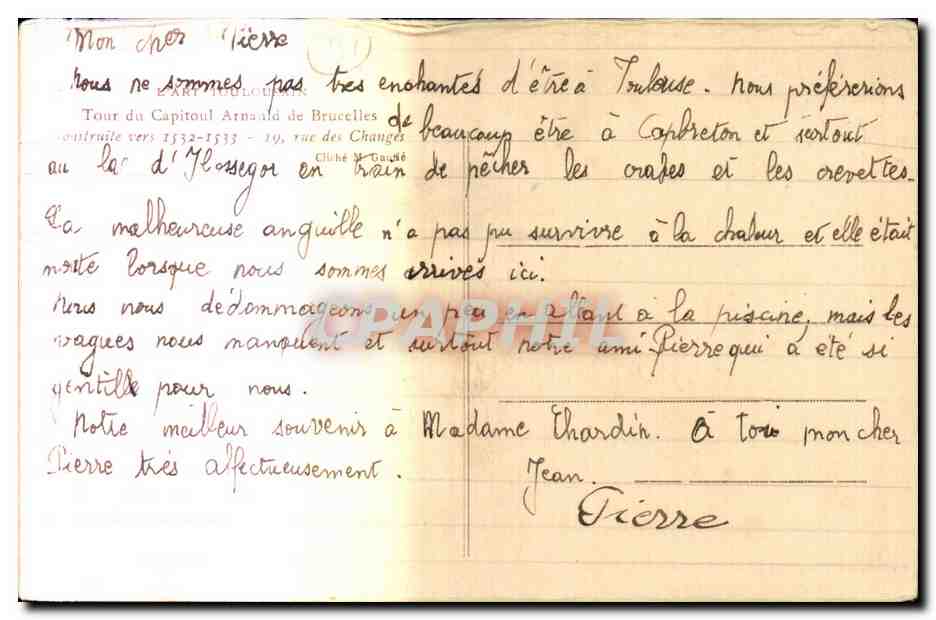 Mon cher Pierre
Nous ne sommes pas très enchantés d'être à Toulouse. Nous préférerions
L'ART TOULOUSAIN
Tour du Capitoul Arnauld de Brucelles
de beaucoup être à Capbreton et surtout
construite vers 1532-1533 - 19, rue des Changes
Cliché M. Gautié
au lac d'Hossegor en train de pêcher les crabes et les crevettes.
La malheureuse anguille n'a pas pu survivre à la chaleur et elle était
morte lorsque nous sommes arrivés ici.
Nous nous dédommageons un peu en allant à la piscine, mais les
vagues nous manquent et surtout notre ami Pierre qui a été si
gentille pour nous.
Notre meilleur souvenir à Madame Chardin. à toi mon cher
Pierre très affectueusement.
Jean.
Pierre
CPAPHIL